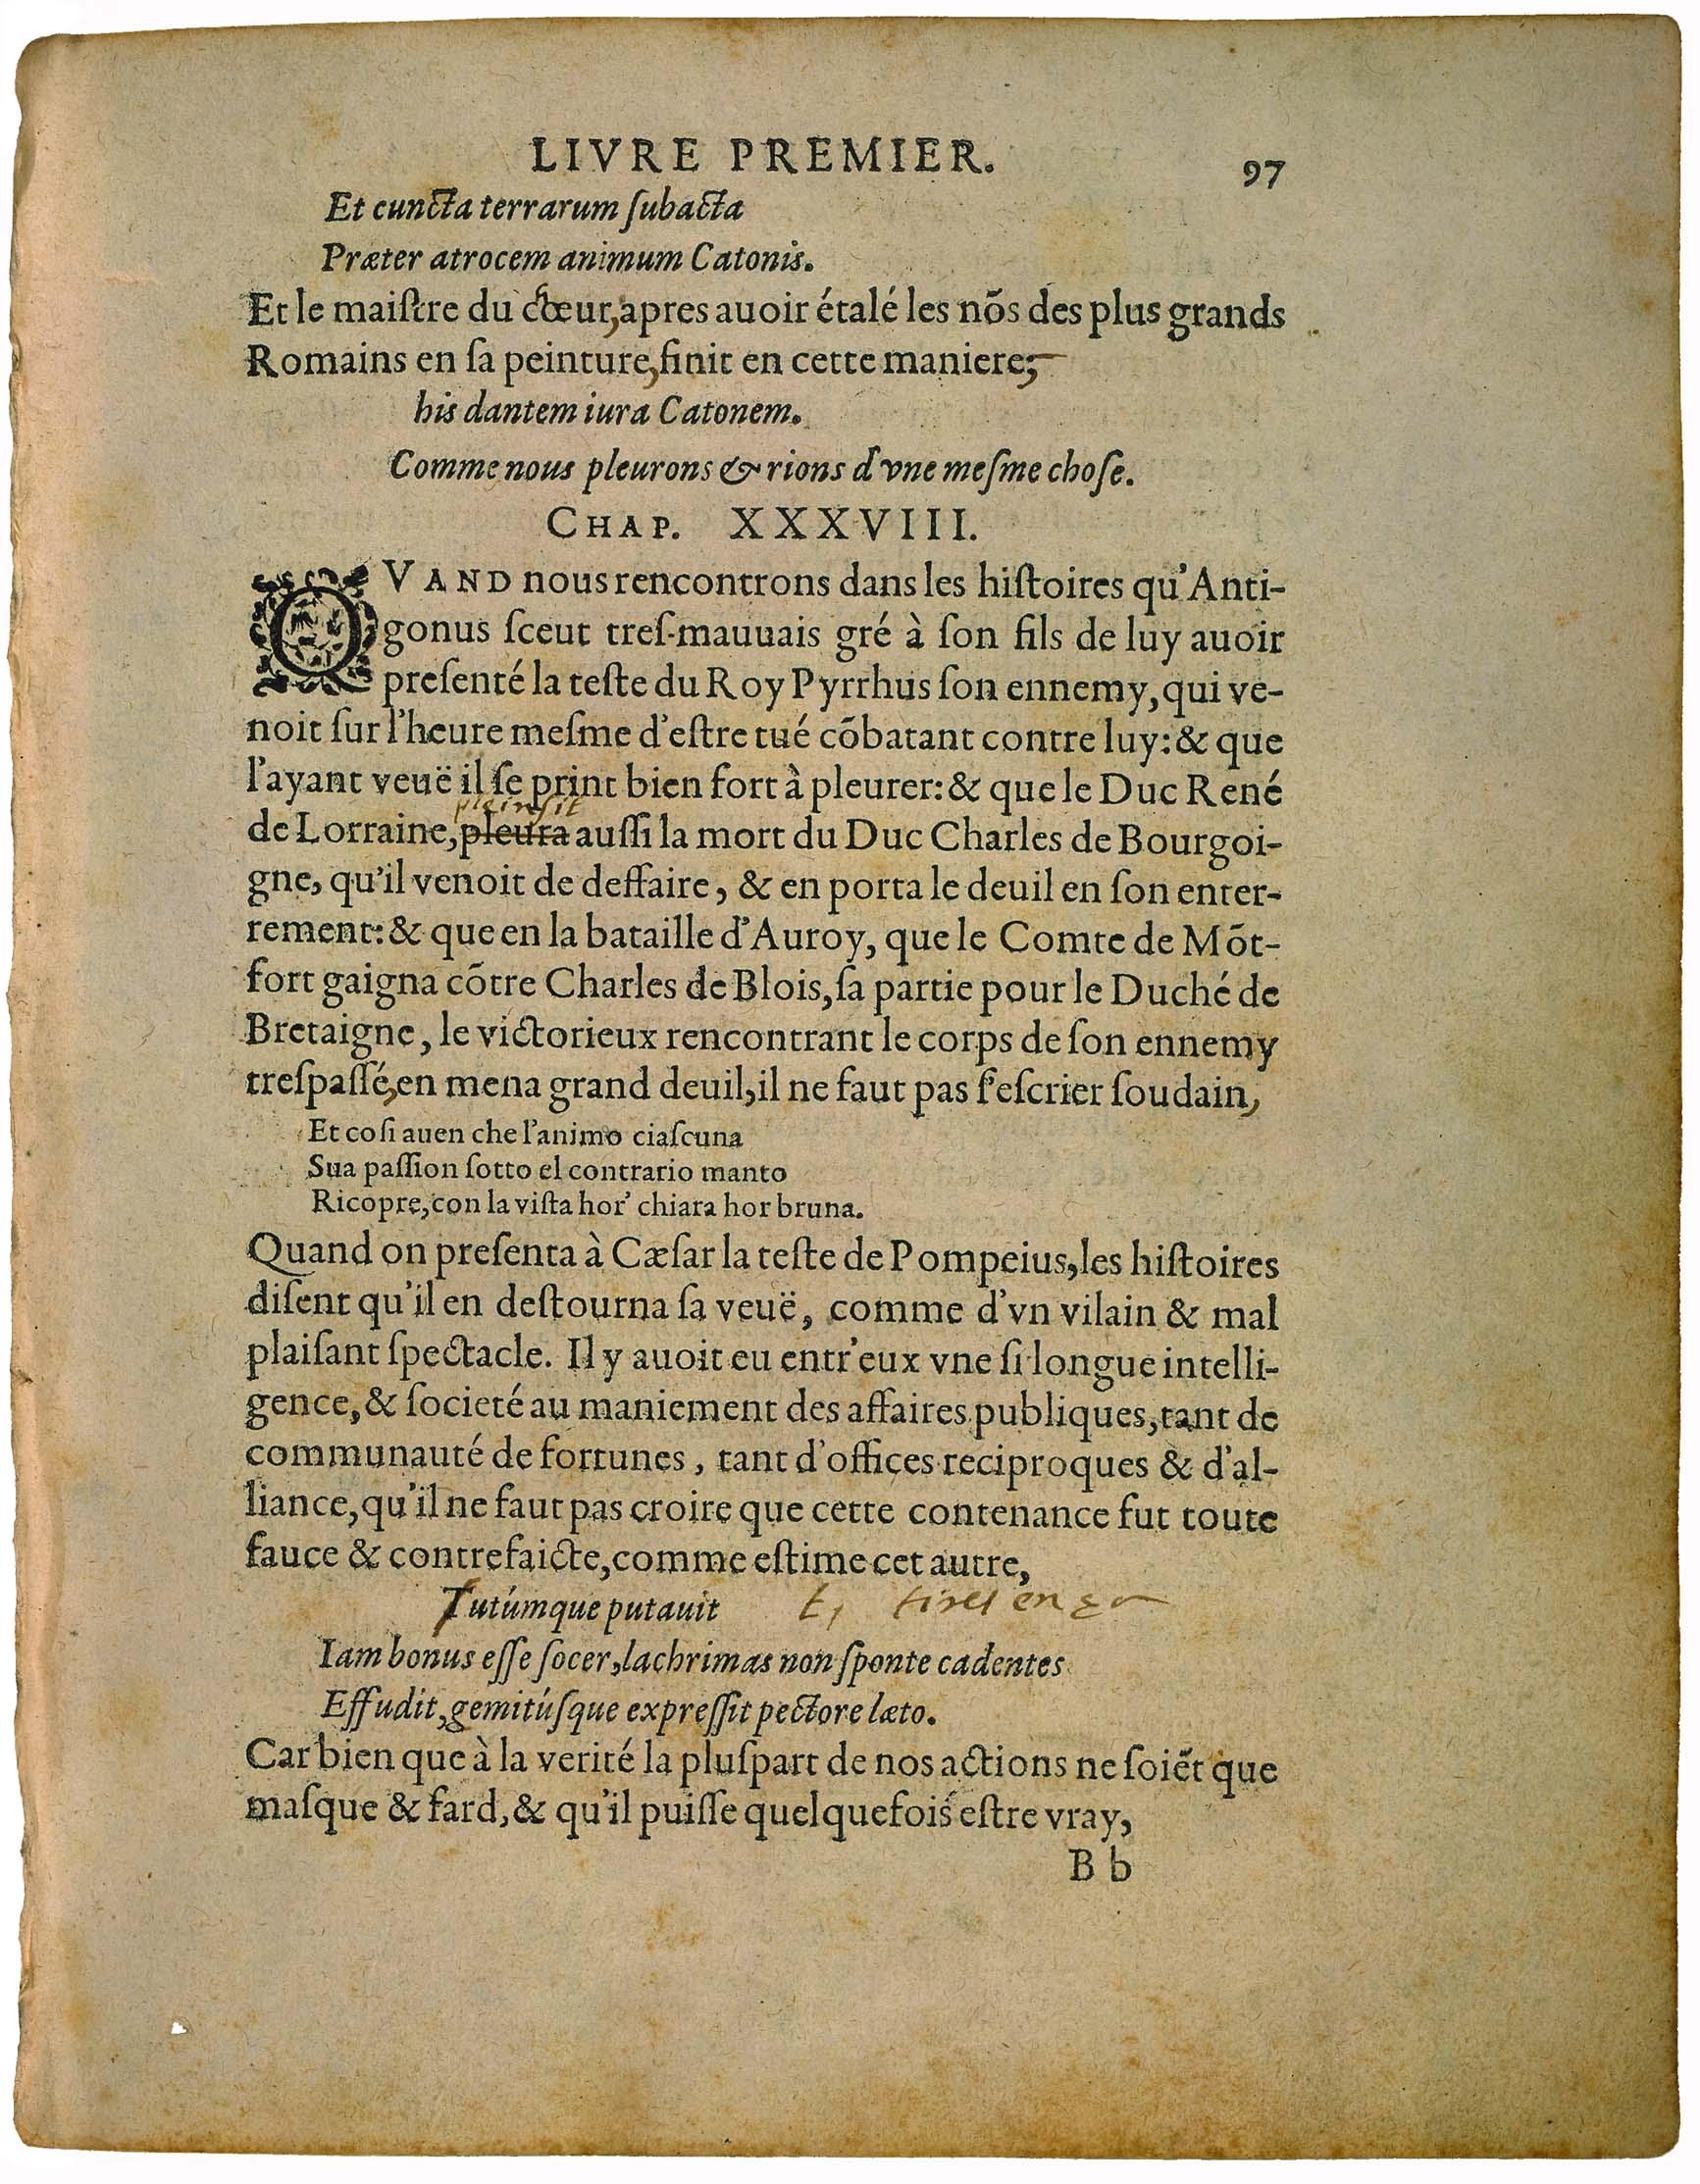 LIVRE PREMIER. 97
Et cuncta terrarum ſubacta
Præter atrocem animum Catonis.
Et le maiſtre du chœur, apres auoir étalé les nõs des plus grands
Romains en ſa peinture, finit en cette maniere:
his dantem iura Catonem.
Comme nous pleurons & rions d'vne meſme choſe.
CHAP. XXXVIII.
QVAND nous rencontrons dans les hiſtoires qu'Anti-
gonus ſceut treſ-mauuais gré à ſon fils de luy auoir
preſenté la teſte du Roy Pyrrhus ſon ennemy, qui ve-
noit ſur l'heure meſme d'eſtre tué cõbatant contre luy: & que
l'ayant veuë il ſe print bien fort à pleurer: & que le Duc René
pleinsit
de Lorraine, pleura auſſi la mort du Duc Charles de Bourgoi-
gne, qu'il venoit de deffaire, & en porta le deuil en ſon enter-
rement: & que en la bataille d'Auroy, que le Comte de Mõt-
fort gaigna cõtre Charles de Blois, ſa partie pour le Duché de
Bretaigne, le victorieux rencontrant le corps de ſon ennemy
treſpaſſé, en mena grand deuil, il ne faut pas ſ'eſcrier ſoudain,
Et coſi auen che l'animo ciaſcuna
Sua paſſion ſotto el contrario manto
Ricopre, con la viſta hor' chiara hor bruna.
Quand on preſenta à Cæſar la teſte de Pompeius, les hiſtoires
diſent qu'il en deſtourna ſa veuë, comme d'vn vilain & mal
plaiſant ſpectacle. Il y auoit eu entr'eux vne ſi longue intelli-
gence, & ſocieté au maniement des affaires publiques, tant de
communauté de fortunes, tant d'offices reciproques & d'al-
liance, qu'il ne faut pas croire que cette contenance fut toute
fauce & contrefaicte, comme eſtime cet autre,
Tutúmque putauit
Iam bonus eſſe ſocer, lachrimas non ſponte cadentes
Effudit, gemitúſque expreſſit pectore læto.
Car bien que à la verité la pluſpart de nos actions ne ſoiẽt que
maſque & fard, & qu'il puiſſe quelquefois eſtre vray,
B b